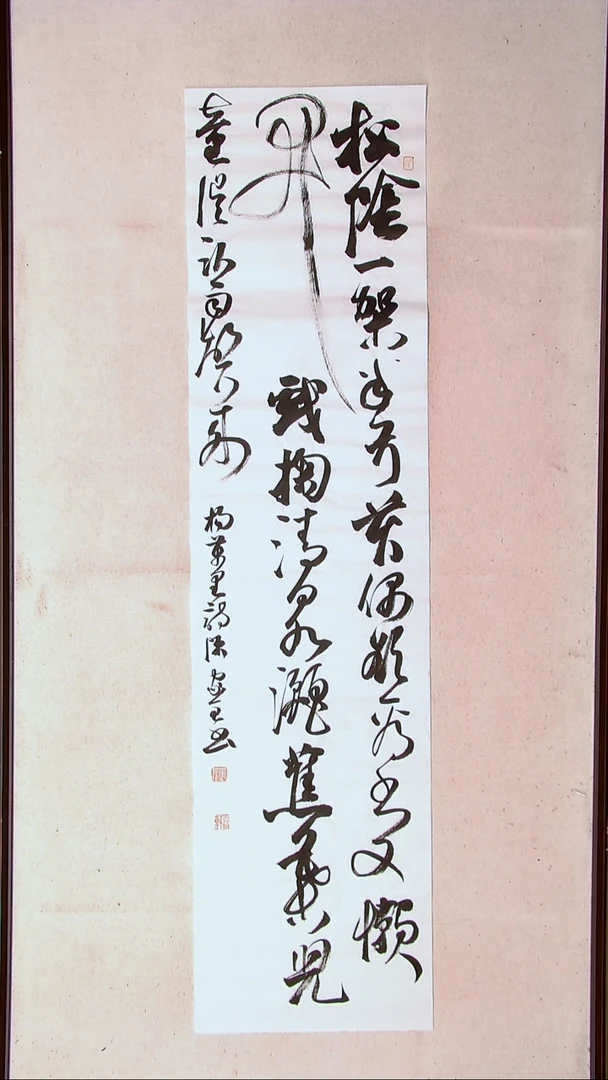 松陰一架半弓苔偶欲看書又懶
開戲掬清泉灑蕉葉兒
童誤認雨聲來
楊萬里詩 書